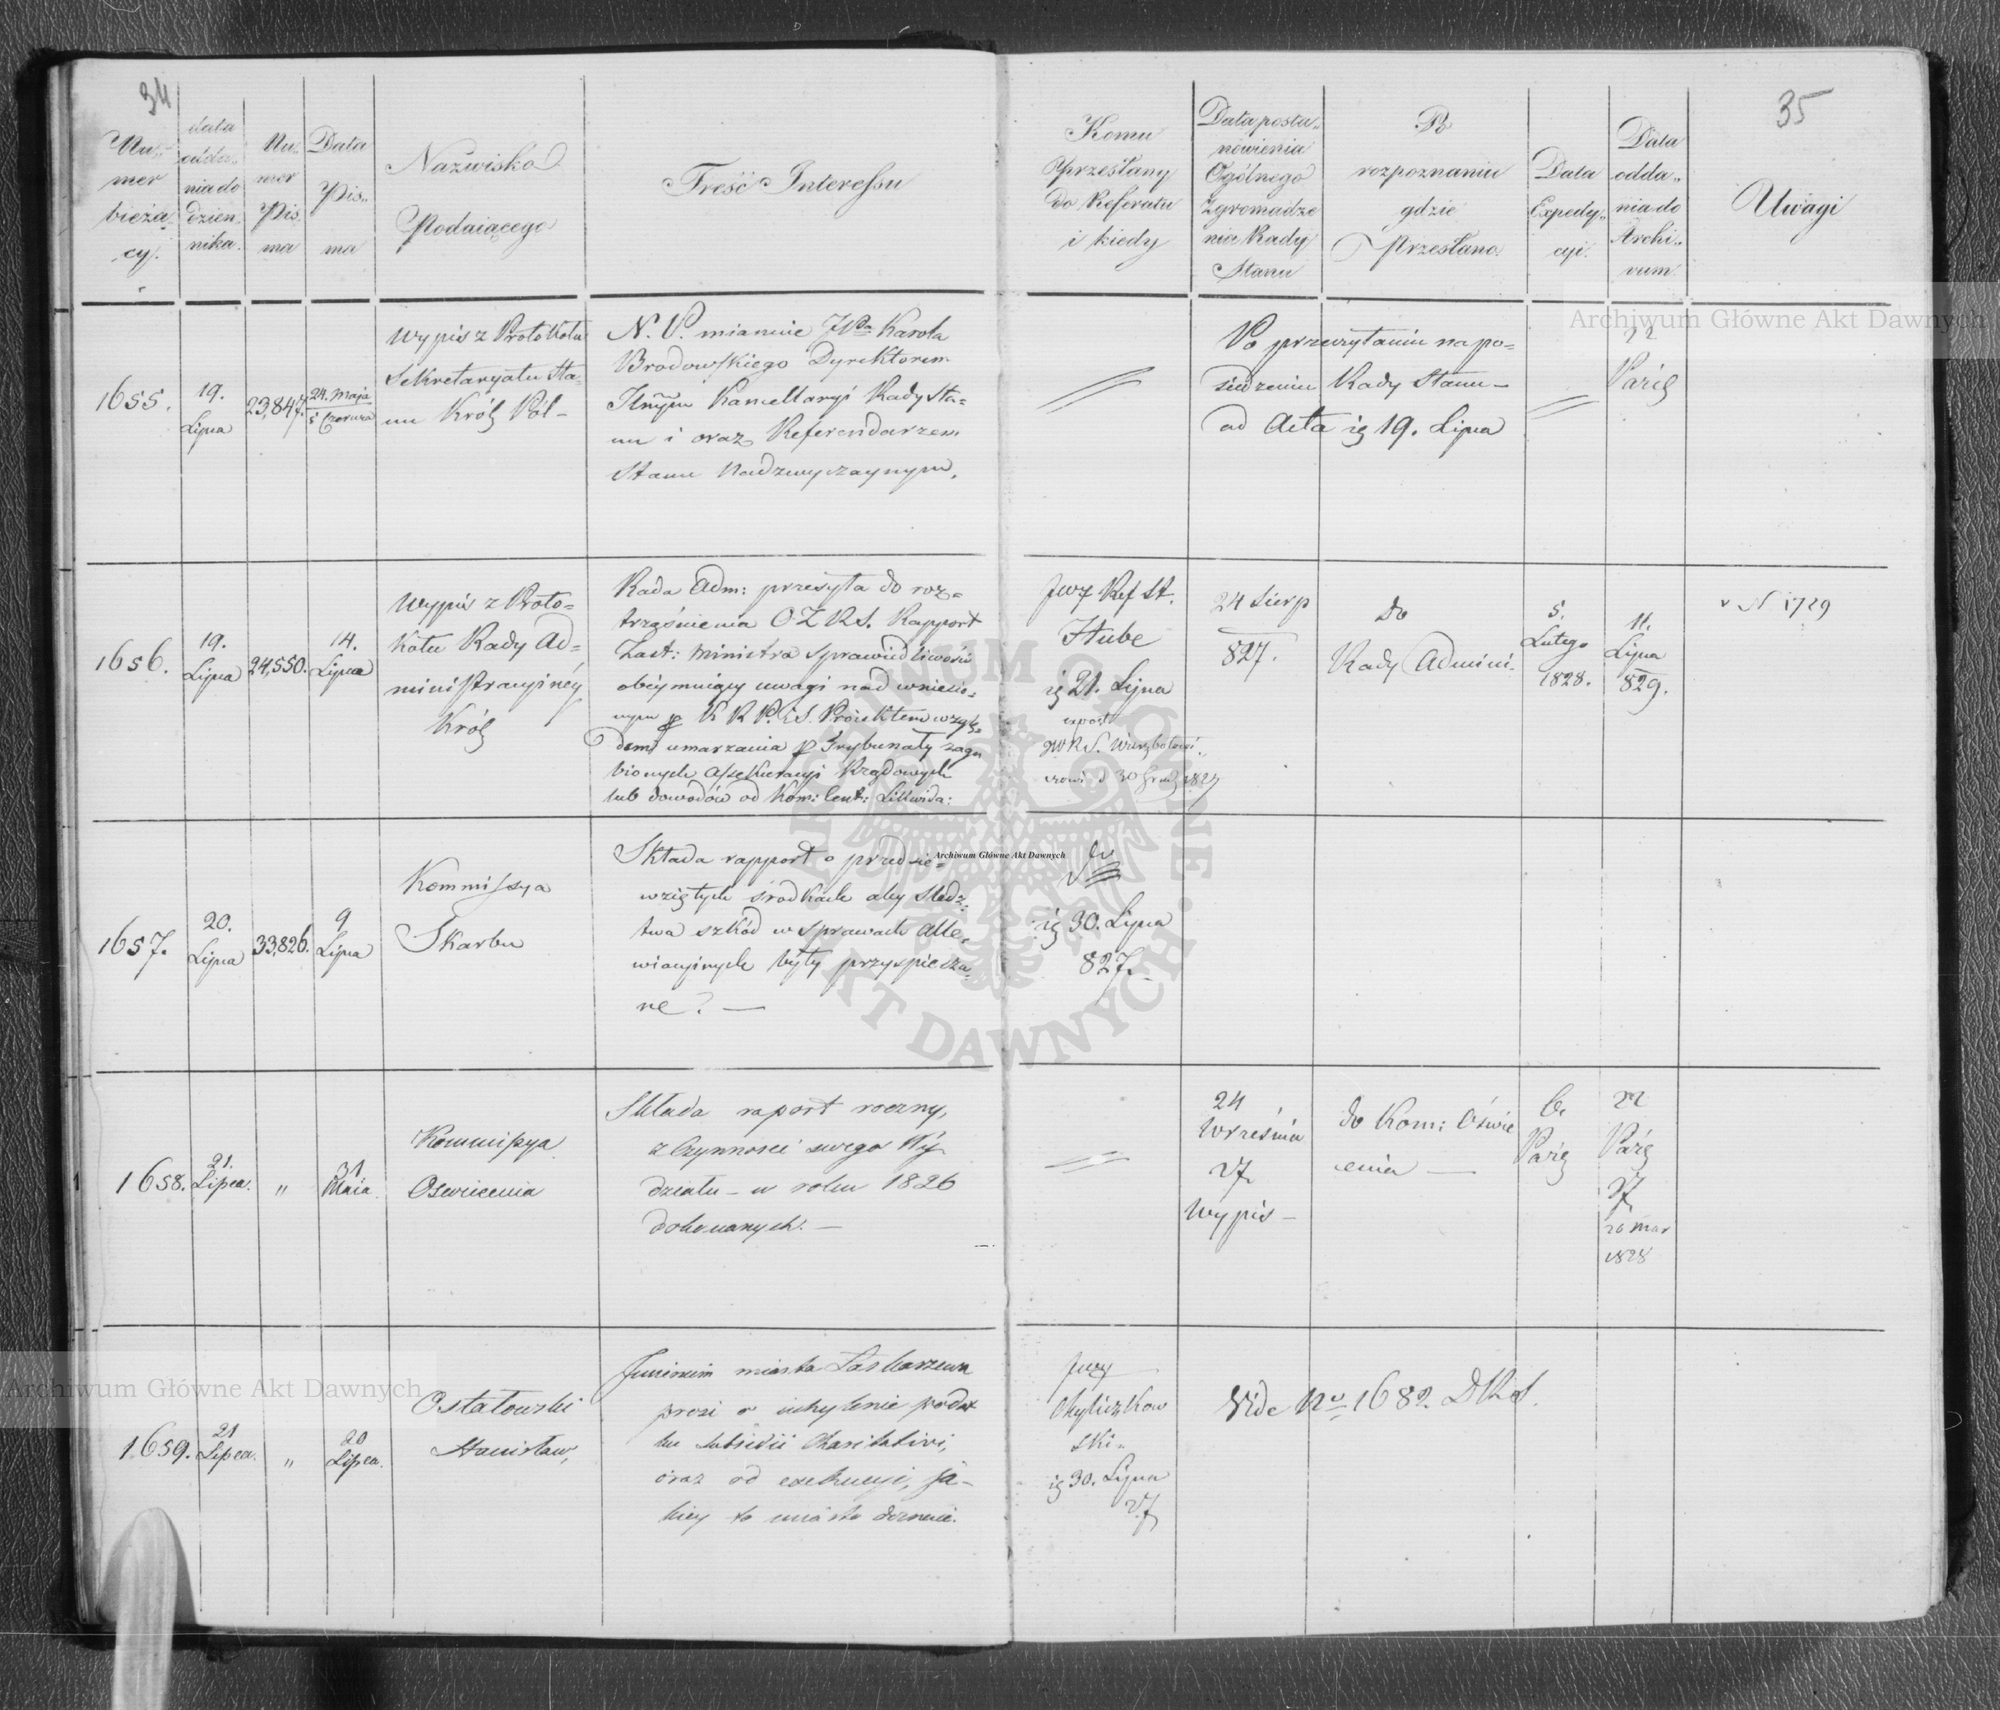 34
Nu-
mer
bieżą-
cy.
data
odda-
nia do
dzien-
nika.
Nu-
mer
Pis-
ma
Data
Pis-
ma
Nazwisko
Podaiącego
Treść Interessu
35
Komu
Przesłany
do Referatu
i kiedy
Data posta-
nowienia
Ogólnego
Zgromadze
nia Rady
Stanu
Po
rozpoznaniu
gdzie
Przesłano
Data
Expedy-
cyi.
Data
odda-
nia do
Archi-
vum
Uwagi
1655.
19.
Lipca
23,847.
24. Maja
5 Czerwca
Wypis z Protokołu
Sekretaryatu Sta-
nu Król Pol-
N. P. mianuie JPa Karola
Brodowskiego Dyrektorem
Kancellaryi Rady Sta-
nu i oraz Referendarzem
Stanu Nadzwyczaynym.
Po przeczytaniu na po-
siedzeniu Rady Stanu
ad Acta 19. Lipca
22
Paźź
1656.
19.
Lipca
24,550.
14.
Lipca
Wypis z Proto-
kołu Rady Ad-
ministracyiney
Król
Rada Adm: przesyła do roz-
trząśnienia O Z R S. Rapport
Zast: Ministra Sprawiedliwości
obeymuiący uwagi nad wniesio-
nym p K R P. i S. Proiektem wzglę-
dem umarzania p Trybunały zagu
bionych Assekuracyi Rządowych
lub dowodów od Kom: Cent: Likwida:
JWP Ref St.
Hube
21. Lipca
30 Grud 1827
24 Sierp
827.
do
Rady Admini.
5.
Lutego
1828.
11.
Lipca
829.
v N 1729
1657.
20.
Lipca
33,826.
9
Lipca
Kommissya
Skarbu
Składa rapport o przedsie-
wziętych środkach aby śledz-
twa szkód w Sprawach Alle-
wiacyinych były przyspiesza-
ne? —
30. Lipca
827.
1658.
21.
Lipca.
"
31
Maia.
Kommissya
Oswiecenia
Składa raport roczny,
z Czynnosci swego Wy-
działu - w roku 1826
dokonanych. —
24
Września
27.
Wypis -
do Kom: Oświe
cenia —
6.
Paźź
22
Paźź
27.
20 Mar
1828
1659.
21
Lipca.
"
20
Lipca.
Ostałowski
Stanisław,
Imieniem miasta Łaskarzewa
prosi o uchylenie podat
ku subsidii Charitativi,
oraz od exekucyi, ja-
kiey to miasto doznaie.
30. Lipca
27.
Vide No 1682. DRS.
Archiwum Główne Akt Dawnych
Archiwum Główne Akt Dawnych
Archiwum Główne Akt Dawnych
ARCHIWUM GŁÓWNE AKT DAWNYCH